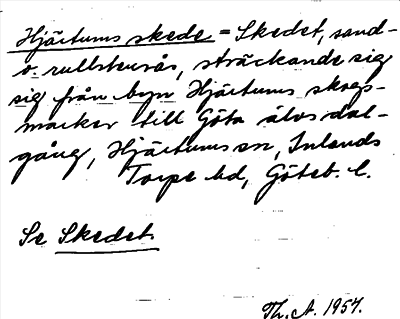 Hjärtums skede = Skedet, sand-
o. rullstensås, sträckande sig
sig från byn Hjärtums skogs-
marker till Göta älvs dal-
gång, Hjärtums sn, Inlands
Torpe hd, Göteb. l.
Se Skedet.
Th. A. 1957.